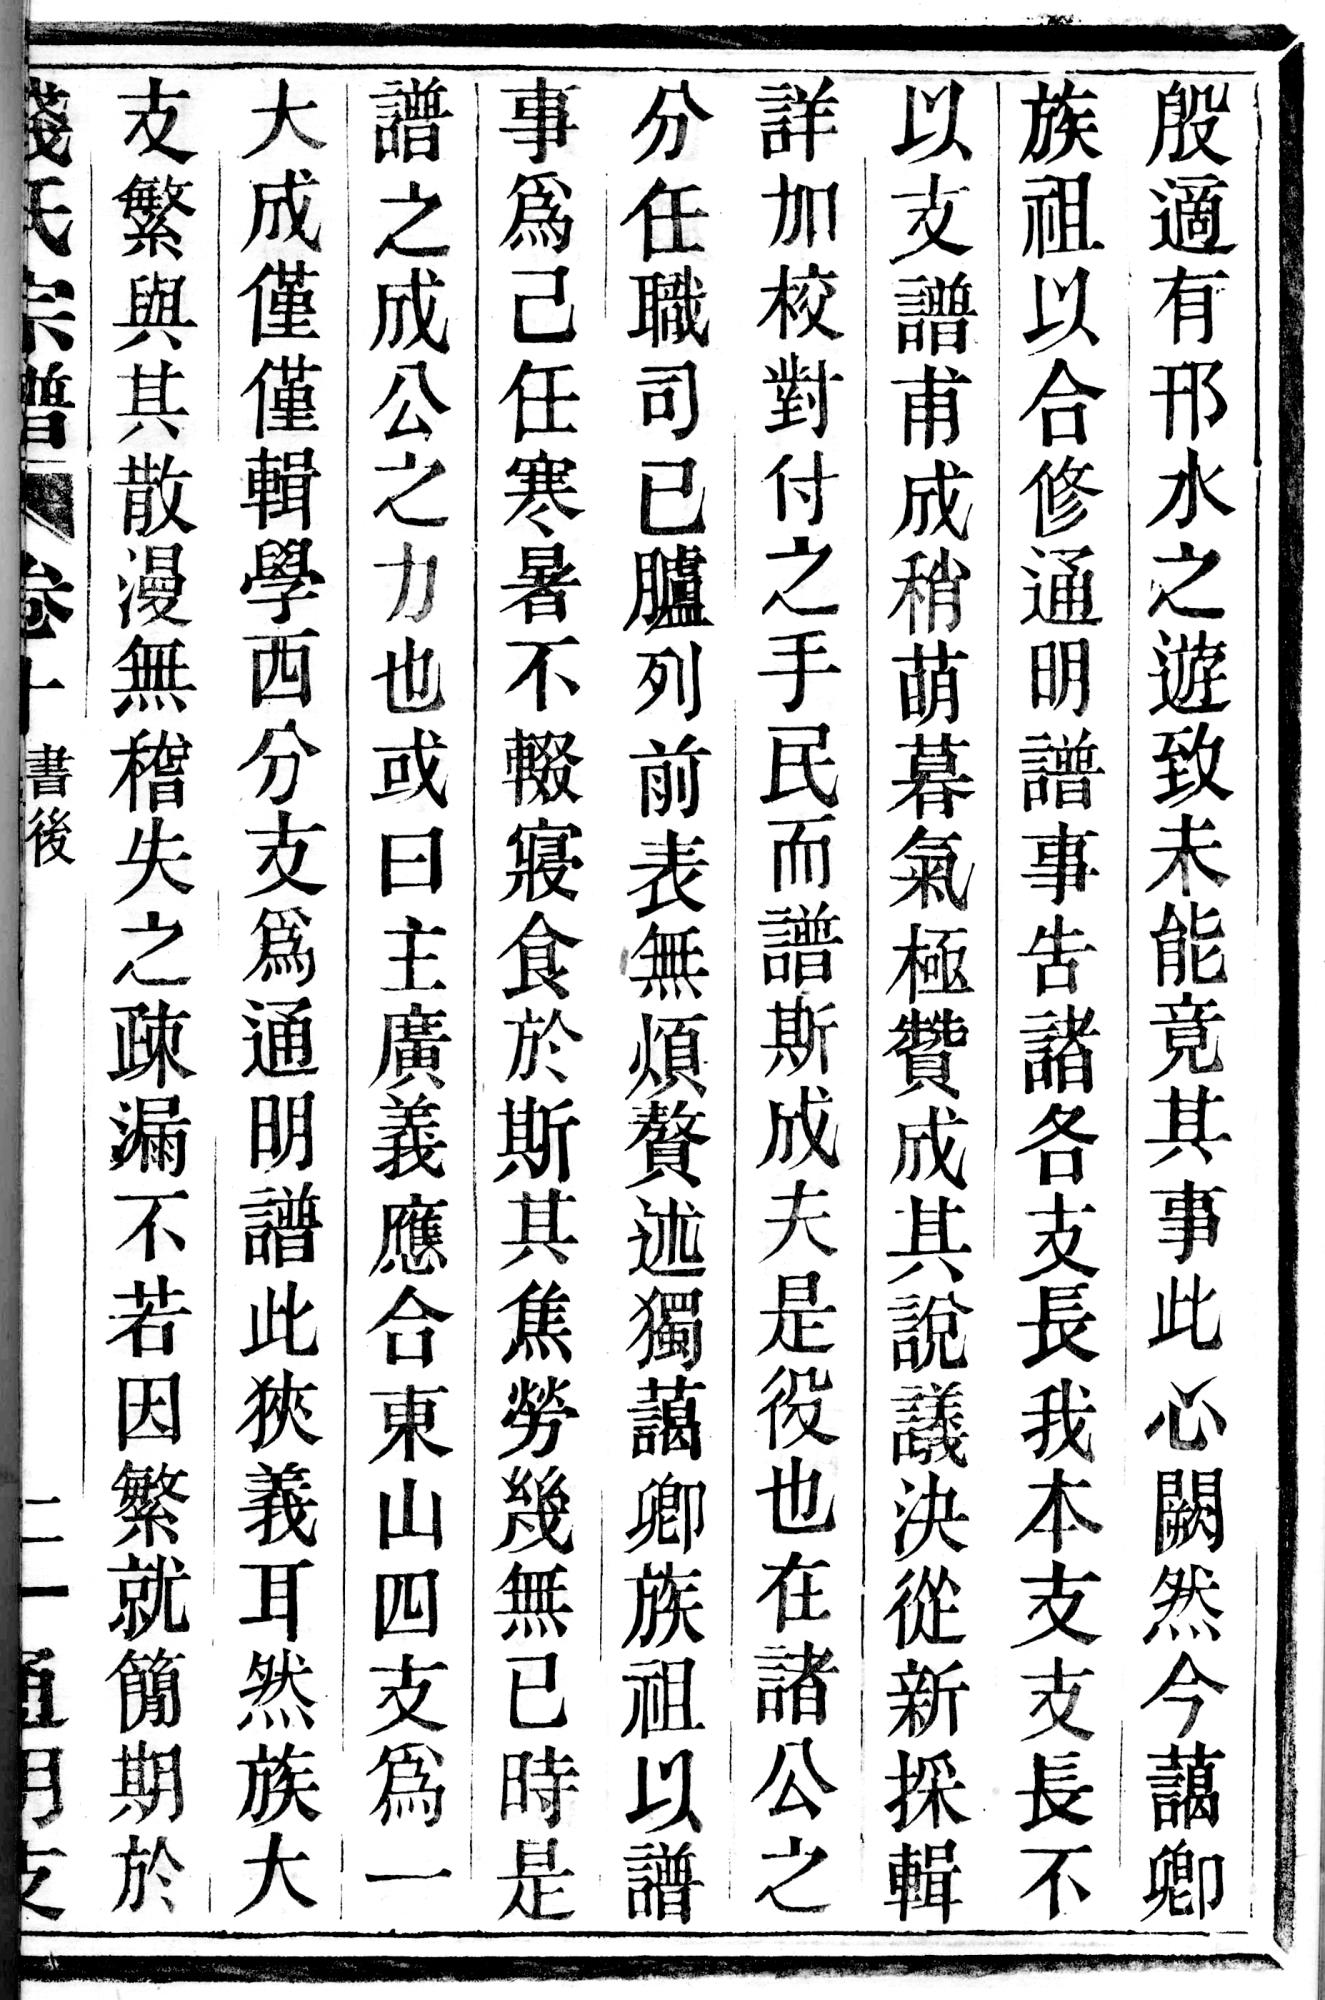 殷適有邗水之遊致未能竟其事此心闕然今藹卿
族祖以合修通明譜事告諸各支長我本支支長不
以支譜甫成稍萌暮氣極贊成其說議決從新採輯
詳加校對付之手民而譜斯成夫是役也在諸公之
分任職司已臚列前表無煩贅述獨藹卿族祖以譜
事爲己任寒暑不輟寢食於斯其焦勞幾無已時是
譜之成公之力也或曰主廣義應合東山四支爲一
大成僅僅輯學西分支爲通明譜此狹義耳然族大
支繁與其散漫無稽失之疎漏不若因繁就簡期於
氏宗譜 卷十 書後 二一 通明支